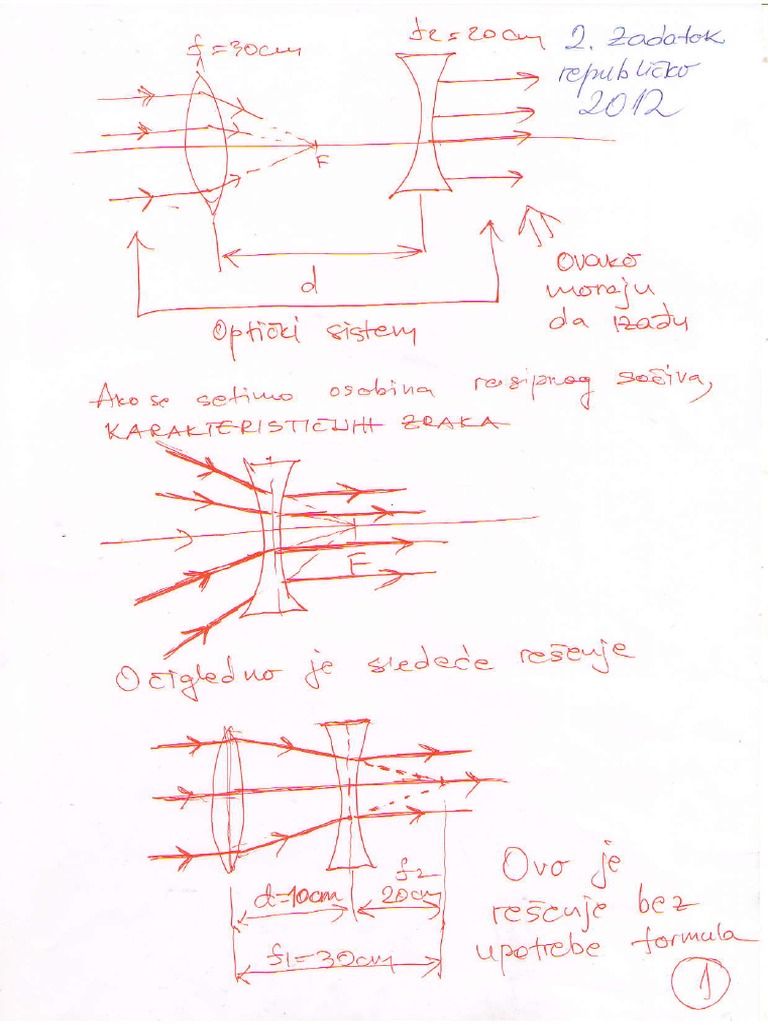 f=30cm
f2=20cm
2. zadatak
republičko
2012
F
d
Optički sistem
Ovako
moraju
da izađu
Ako se setimo osobina rasipnog sočiva,
KARAKTERISTIČNIH ZRAKA
F
Očigledno je sledeće rešenje
d=10cm
f2
20cm
f1=30cm
Ovo je
rešenje bez
upotrebe formula
1